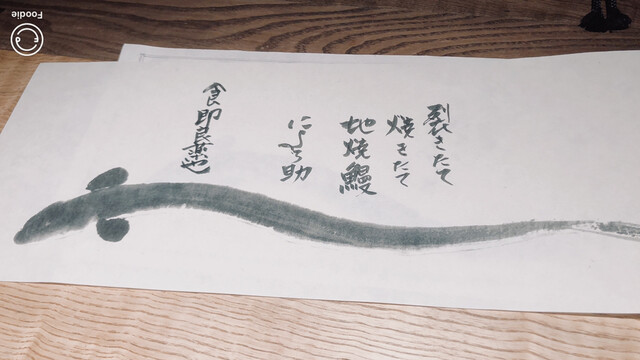 裂きたて
焼きたて
地焼鰻
によろ助
食即良薬也
Foodie